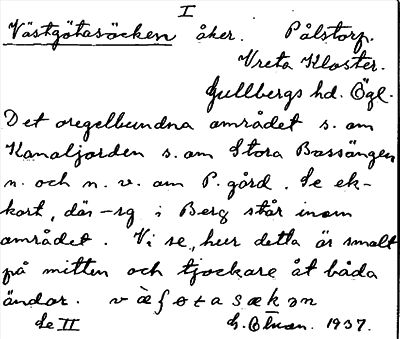 I
Västgötasöcken åker. Pålstorp.
Vreta Kloster.
Gullbergs hd. Ögl.
Det oregelbundna området s. om
Kanaljorden s. om Stora Bassängen
n. och n. v. om P. gård. Se ek-
kort, där -sg i Berg står inom
området. Vi se, hur detta är smalt
på mitten och tjockare åt båda
ändar.
Se II 1937.